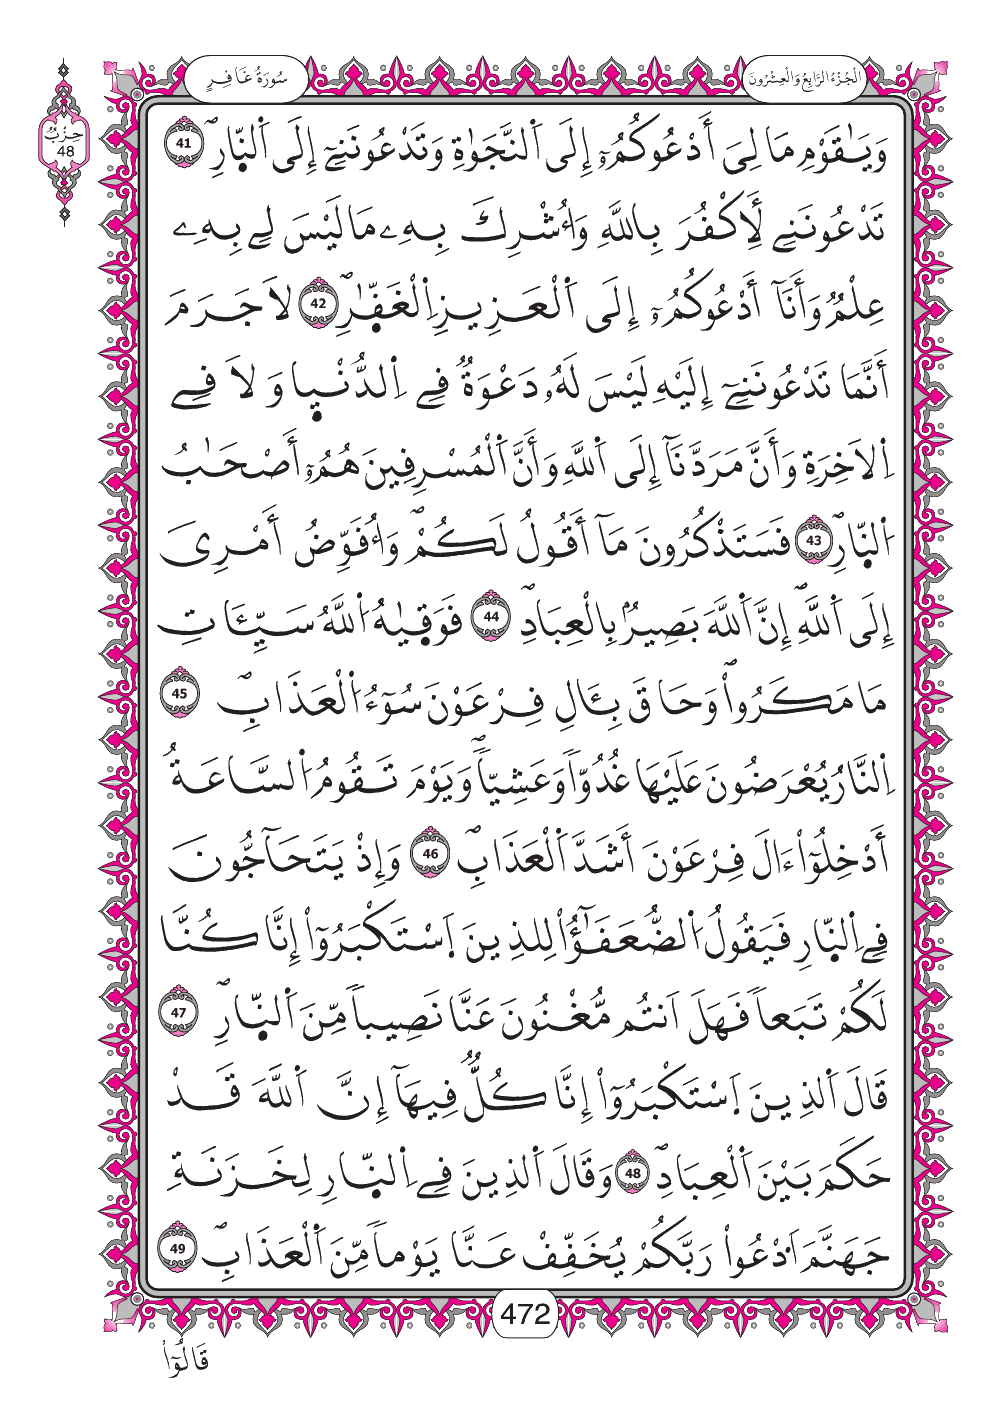 سُورَةُ غَافِرٍ
الْجُزْءُ الرَّابِعُ وَالْعِشْرُونَ
حِزْبٌ
48
وَيَٰقَوْمِ مَا لِيَ أَدْعُوكُمُۥٓ إِلَى اَ۬لنَّجَوٰةِ وَتَدْعُونَنِےٓ إِلَى اَ۬لنّ۪ارِۖ 41
تَدْعُونَنِے لِأَكْفُرَ بِاللَّهِ وَأُشْرِكَ بِهِۦ مَا لَيْسَ لِے بِهِۦ
عِلْمٞ وَأَنَآ أَدْعُوكُمُۥٓ إِلَى اَ۬لْعَزِيزِ اِ۬لْغَفّٰ۪رِۖ 42 لَا جَرَمَ
أَنَّمَا تَدْعُونَنِےٓ إِلَيْهِ لَيْسَ لَهُۥ دَعْوَةٞ فِے اِ۬لدُّنْي۪ا وَلَا فِے
اِ۬لَاخِرَةِ وَأَنَّ مَرَدَّنَآ إِلَى اَ۬للَّهِ وَأَنَّ اَ۬لْمُسْرِفِينَ هُمُۥٓ أَصْحَٰبُ
اُ۬لنّ۪ارِۖ 43 فَسَتَذْكُرُونَ مَآ أَقُولُ لَكُمْۖ وَأُفَوِّضُ أَمْرِيَ
إِلَى اَ۬للَّهِۖ إِنَّ اَ۬للَّهَ بَصِيرُۢ بِالْعِبَادِۖ 44 فَوَق۪يٰهُ اُ۬للَّهُ سَيِّـَٔاتِ
مَا مَكَرُواْۖ وَحَاقَ بِـَٔالِ فِرْعَوْنَ سُوٓءُ اُ۬لْعَذَابِۖ 45
اِ۬لنَّارُ يُعْرَضُونَ عَلَيْهَا غُدُوّاٗ وَعَشِيّاٗۖ وَيَوْمَ تَقُومُ اُ۬لسَّاعَةُ
أَدْخِلُوٓاْ ءَالَ فِرْعَوْنَ أَشَدَّ اَ۬لْعَذَابِۖ 46 وَإِذْ يَتَحَآجُّونَ
فِے اِ۬لنّ۪ارِ فَيَقُولُ اُ۬لضُّعَفَٰٓؤُاْ لِلذِينَ اَ۪سْتَكْبَرُوٓاْ إِنَّا كُنَّا
لَكُمْ تَبَعاٗ فَهَلَ اَنتُم مُّغْنُونَ عَنَّا نَصِيباٗ مِّنَ اَ۬لنّ۪ارِۖ 47
قَالَ اَ۬لذِينَ اَ۪سْتَكْبَرُوٓاْ إِنَّا كُلّٞ فِيهَآ إِنَّ اَ۬للَّهَ قَدْ
حَكَمَ بَيْنَ اَ۬لْعِبَادِۖ 48 وَقَالَ اَ۬لذِينَ فِے اِ۬لنّ۪ارِ لِخَزَنَةِ
جَهَنَّمَ اَ۟دْعُواْ رَبَّكُمْ يُخَفِّفْ عَنَّا يَوْماٗ مِّنَ اَ۬لْعَذَابِۖ 49
472
قَالُوٓاْ